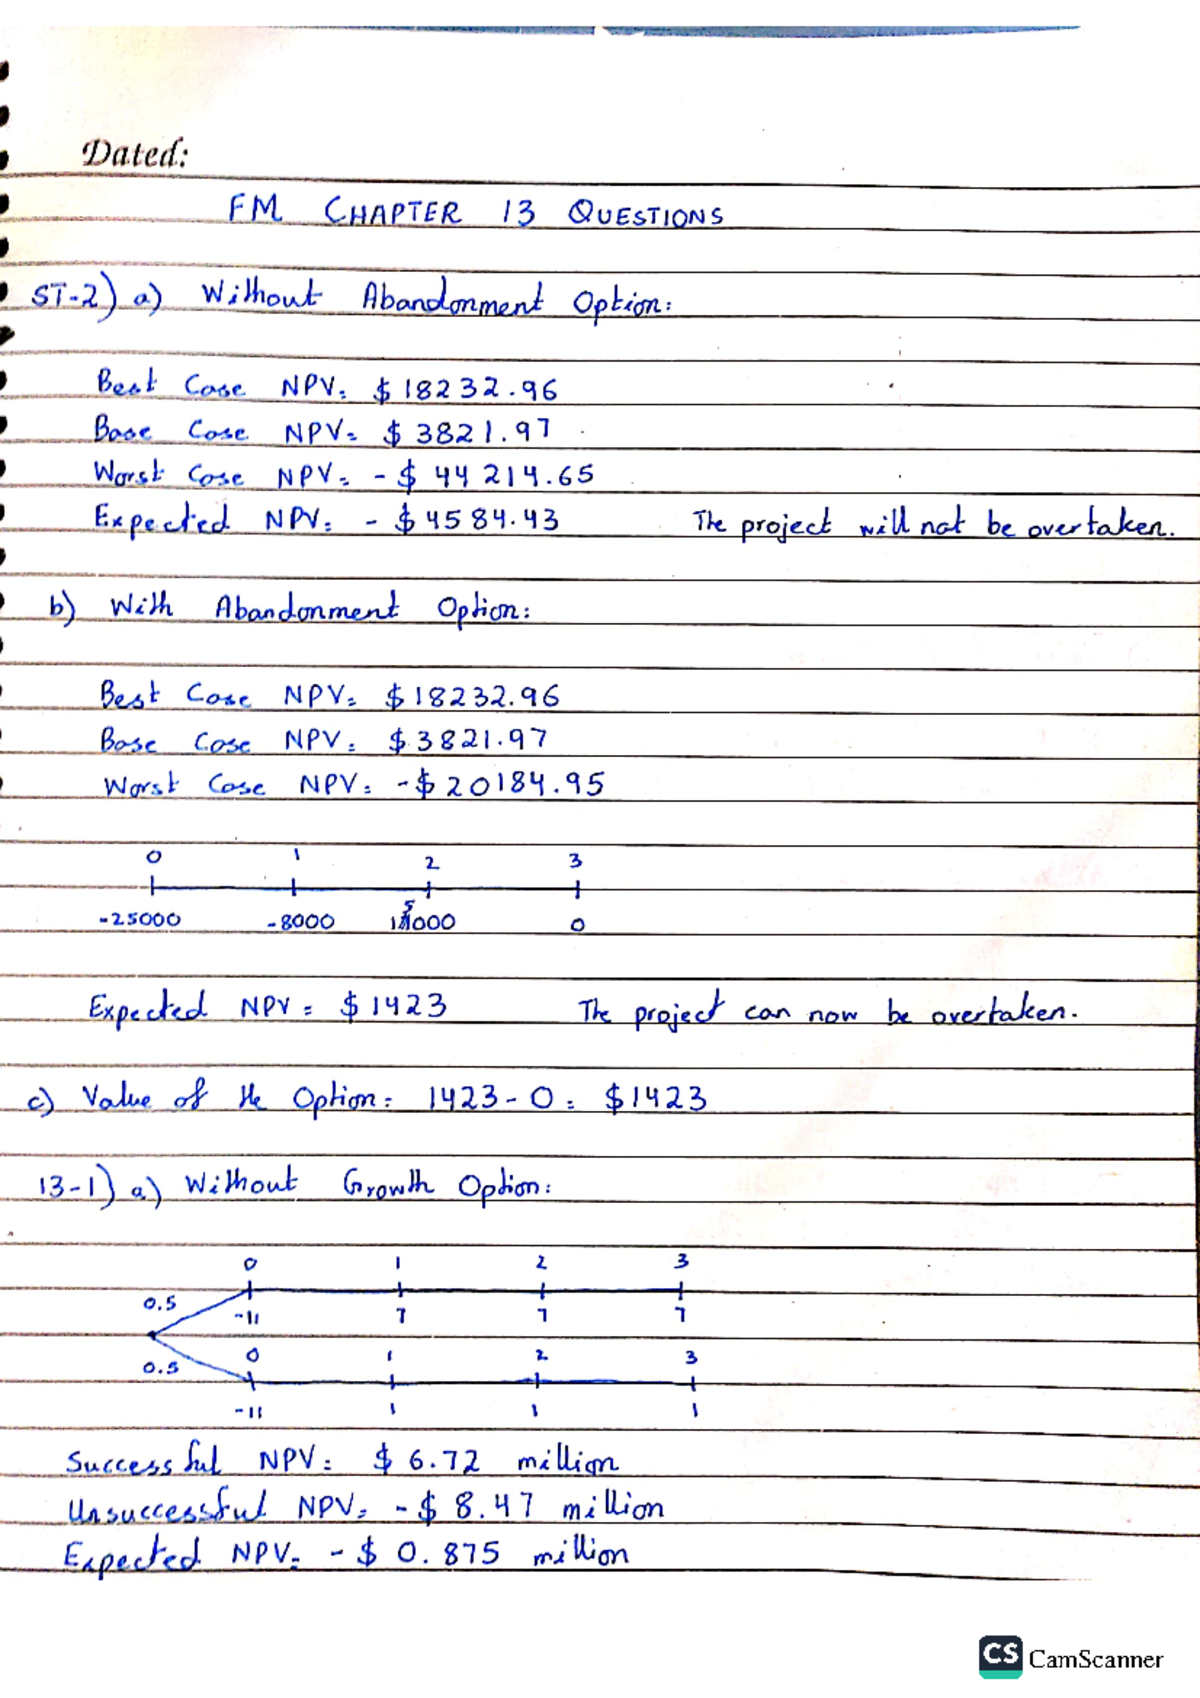 Dated:
FM CHAPTER 13 QUESTIONS
ST-2) a) Without Abandonment Option:
Best Case NPV= $18232.96
Base Case NPV= $3821.97
Worst Case NPV= -$44214.65
Expected NPV= -$4584.43 The project will not be overtaken.
b) With Abandonment Option:
Best Case NPV= $18232.96
Base Case NPV= $3821.97
Worst Case NPV= -$20184.95
0 1 2 3
-25000 -8000 15000 0
Expected NPV = $1423 The project can now be overtaken.
c) Value of the Option= 1423-0= $1423
13-1) a) Without Growth Option:
0 1 2 3
0.5
-11 7 7 7
0 1 2 3
0.5
-11 1 1 1
Successful NPV= $6.72 million
Unsuccessful NPV= -$8.47 million
Expected NPV= -$0.875 million
CS CamScanner